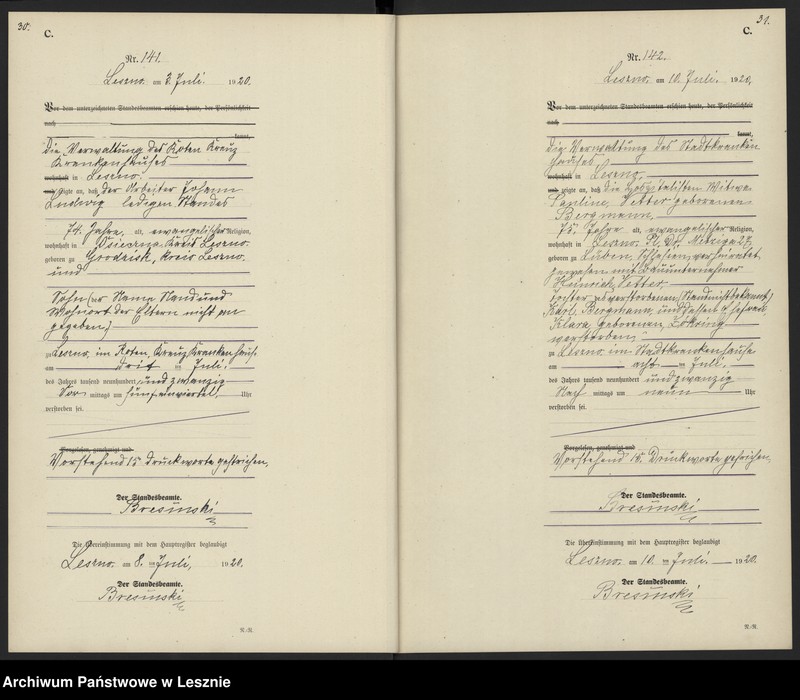 30.
C.
Nr. 141.
Leszno. am 3. Juli. 1920.
Vor dem unterzeichneten Standesbeamten erschien heute, der Persönlichkeit
nach
kannt,
Die Verwaltung des Roten Kreuz
Krankenhauses
wohnhaft in Leszno.
und zeigte an, daß der Arbeiter Johann
Ludwig ledigen Standes
74. Jahre, alt, evangelischer Religion,
wohnhaft in Osieczna Kreis Leszno.
geboren zu Grodzisk, Kreis Leszno.
und
Sohn (der Name Stand und
Wohnort der Eltern nicht an
gegeben)
zu Leszno, im Roten, Kreuz Krankenhause
am drit ten Juli.
des Jahres tausend neunhundert und zwanzig
Vor mittags um fünf Uhr
verstorben sei.
Vorgelesen, genehmigt und
Vorstehend 15 Druckworte gestrichen,
Der Standesbeamte.
Bresinski
Die Übereinstimmung mit dem Hauptregister beglaubigt
Leszno. am 8. ten Juli, 1920.
Der Standesbeamte.
Bresinski
R.-R.
31.
C.
Nr. 142.
Leszno am 10. Juli. 1920,
Vor dem unterzeichneten Standesbeamten erschien heute, der Persönlichkeit
nach
kannt,
Die Verwaltung des Stadtkranken
hauses,
wohnhaft in Leszno.
und zeigte an, daß die Hospitalistin Witwe
Pauline, Vetter geborenen
Bergmann,
75, Jahre alt, evangelischer Religion,
wohnhaft in Leszno. Pl. Dr. Metziga 27,
geboren zu Lüben, Schlesien, verheiratet
gewesen mit Bauunternehmer
Heinrich, Vetter,
Tochter des verstorbenen, (Stand nicht bekannt)
Karl. Bergmann, und dessen Ehefrau,
Klara, geborenen,
verstorben,
zu Leszno im Stadtkrankenhause
am acht ten Juli.
des Jahres tausend neunhundert und zwanzig
Nach mittags um neun Uhr
verstorben sei.
Vorgelesen, genehmigt und
Vorstehend 15. Druckworte gestrichen,
Der Standesbeamte.
Bresinski
Die Übereinstimmung mit dem Hauptregister beglaubigt
Leszno. am 10. ten Juli. 1920.
Der Standesbeamte.
Bresinski
R.-R.
Archiwum Państwowe w Lesznie